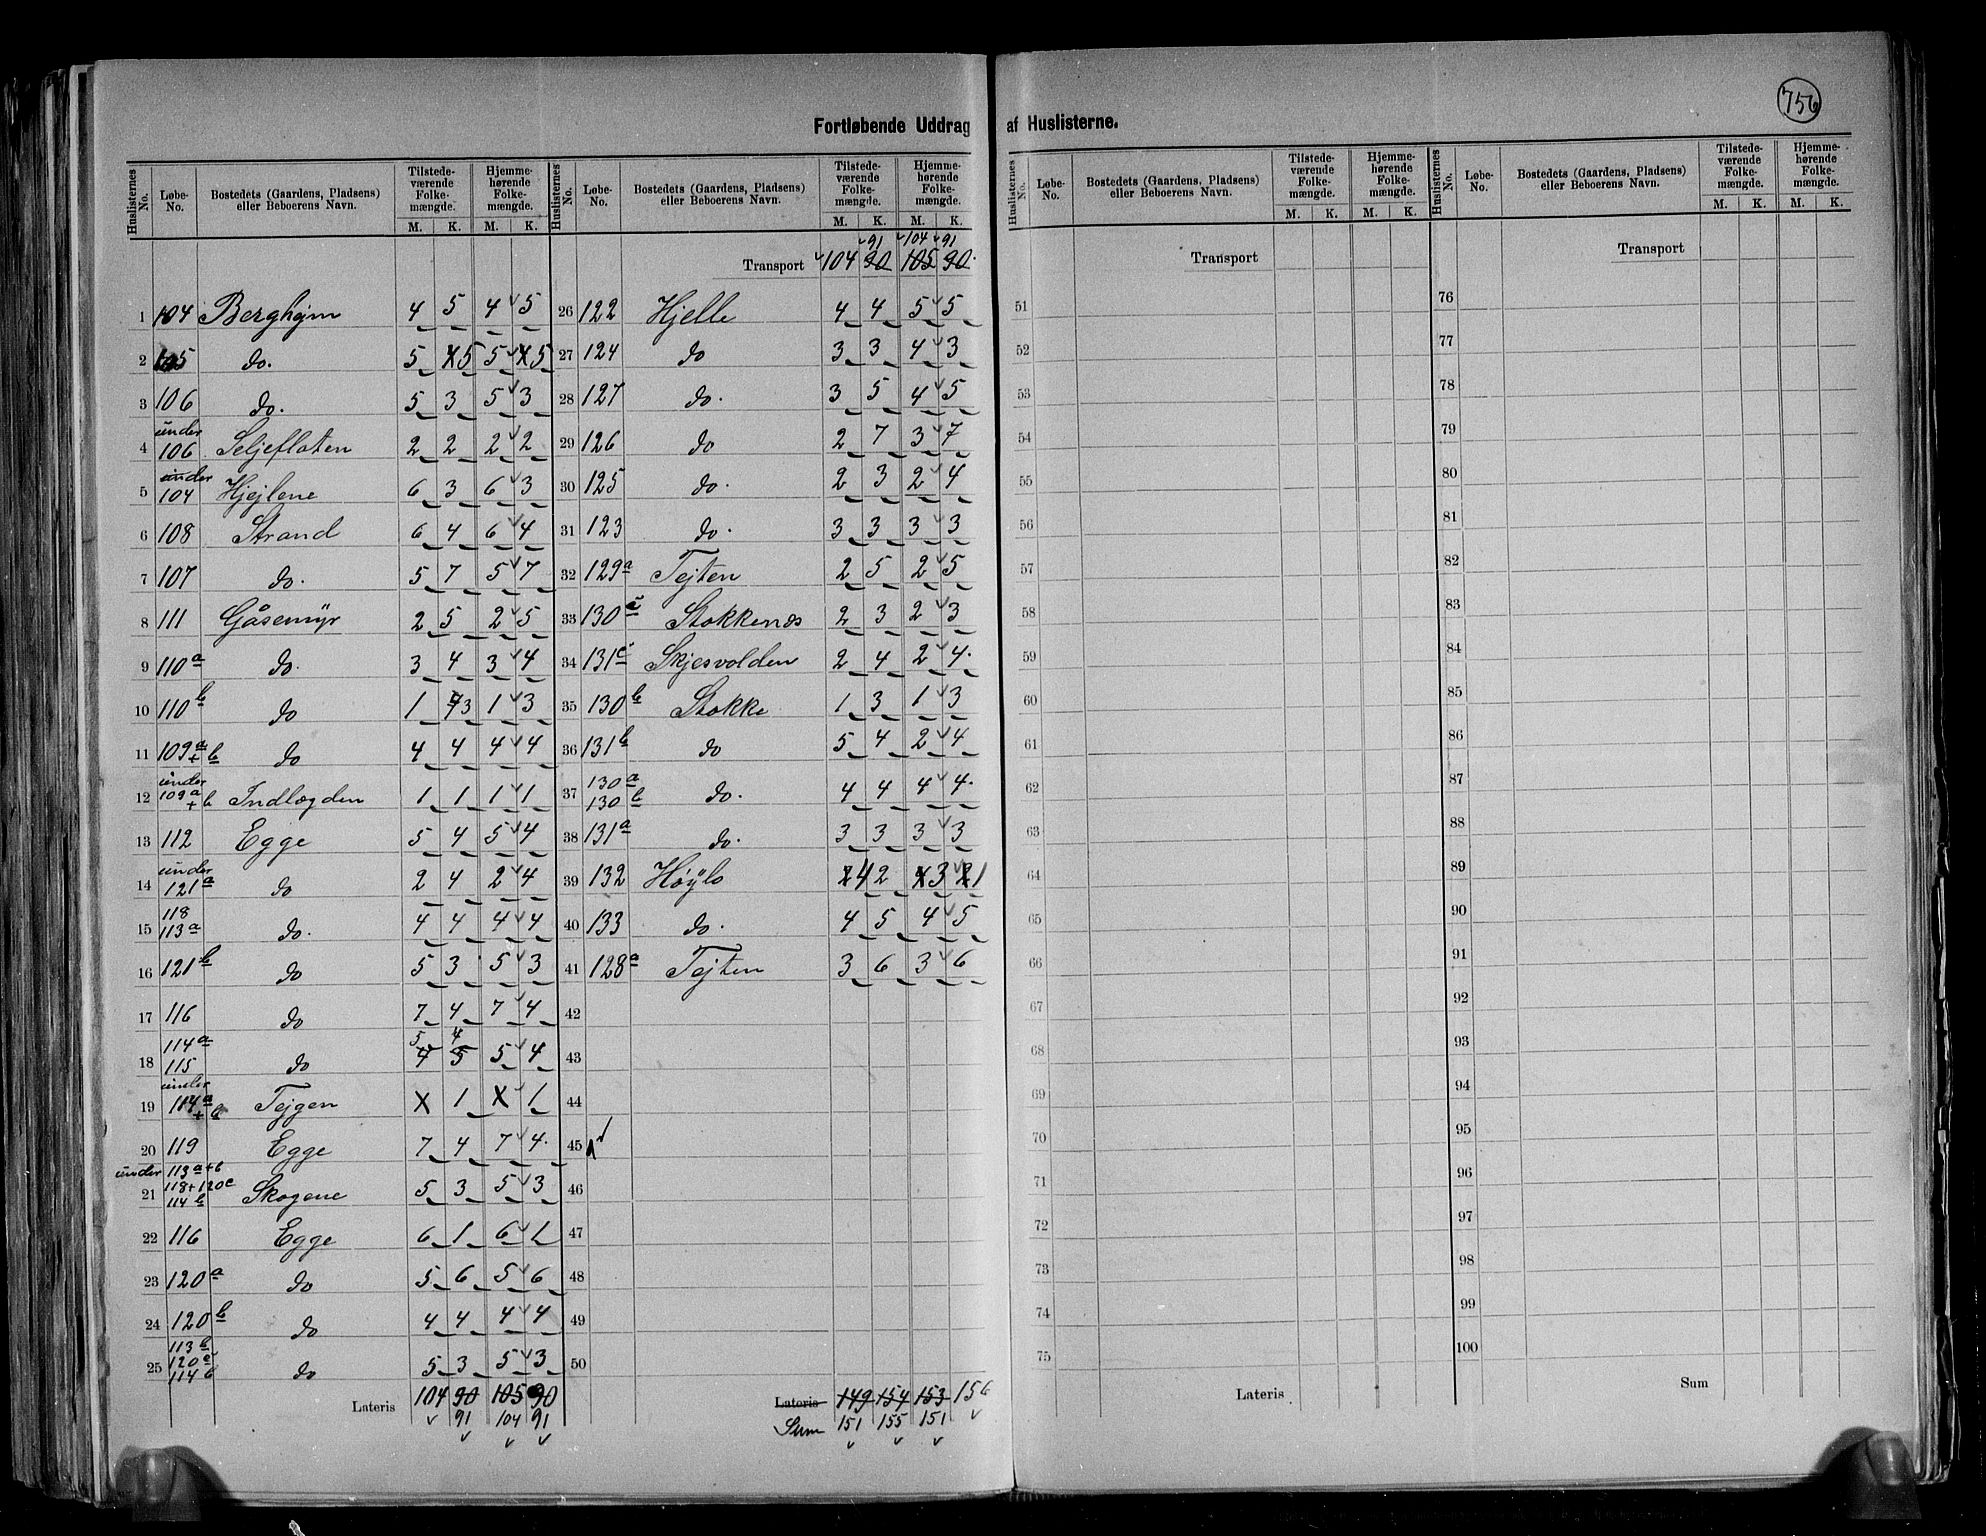 756
Fortløbende Uddrag af Huslisterne.
Huslisternes No. | Løbe-No. | Bostedets (Gaardens, Pladsens) eller Beboerens Navn. | Tilstedeværende Folkemængde. M. K. | Hjemmehørende Folkemængde. M. K.
1 104 Berghejm 4 5 4 5
2 105 do. 5 X 5 5 X 5
3 106 do. 5 3 5 3
4 under 106 Seljefloten 2 2 2 2
5 under 104 Hjejlene 6 3 6 3
6 108 Strand 6 4 6 4
7 107 do. 5 7 5 7
8 111 Gåsemyr 2 5 2 5
9 110a do. 3 4 3 4
10 110b do 1 3 1 3
11 109a+b do 4 4 4 4
12 under 109a+b Indlægden 1 1 1 1
13 112 Egge 5 4 5 4
14 under 121a do 2 4 2 4
15 118 113a do. 4 4 4 4
16 121b do 5 3 5 3
17 116 do 7 4 7 4
18 114a 115 do 5 4 4 5 5 4
19 under 114a Tejgen X 1 X 1
20 119 Egge 7 4 7 4
21 under 113a+b 118+120c 114b Skogene 5 3 5 3
22 116 Egge 6 1 6 1
23 120a do 5 6 5 6
24 120b do 4 4 4 4
25 113b 120c 114b do 5 3 5 3
Lateris 104 90 105 90
91 104 91
Huslisternes No. | Løbe-No. | Bostedets (Gaardens, Pladsens) eller Beboerens Navn. | Tilstedeværende Folkemængde. M. K. | Hjemmehørende Folkemængde. M. K.
91 104 91
Transport 104 90 105 90
26 122 Hjelle 4 4 5 5
27 124 do 3 3 4 3
28 127 do. 3 5 4 5
29 126 do 2 7 3 7
30 125 do. 2 3 2 4
31 123 do. 3 3 3 3
32 129a Tejten 2 5 2 5
33 130c Stokkenes 2 3 2 3
34 131c Skjesvolden 2 4 2 4
35 130b Stokke 1 3 1 3
36 131b do 5 4 2 4
37 130a 130b do. 4 4 4 4
38 131a do. 3 3 3 3
39 132 Høylo 4 2 X 3 1
40 133 do. 4 5 4 5
41 128a Tejten 3 6 3 6
42
43
44
45
46
47
48
49
50
Lateris 149 154 153 156
Sum 151 155 151
Huslisternes No. | Løbe-No. | Bostedets (Gaardens, Pladsens) eller Beboerens Navn. | Tilstedeværende Folkemængde. M. K. | Hjemmehørende Folkemængde. M. K.
Transport
51
52
53
54
55
56
57
58
59
60
61
62
63
64
65
66
67
68
69
70
71
72
73
74
75
Lateris
Huslisternes No. | Løbe-No. | Bostedets (Gaardens, Pladsens) eller Beboerens Navn. | Tilstedeværende Folkemængde. M. K. | Hjemmehørende Folkemængde. M. K.
Transport
76
77
78
79
80
81
82
83
84
85
86
87
88
89
90
91
92
93
94
95
96
97
98
99
100
Sum